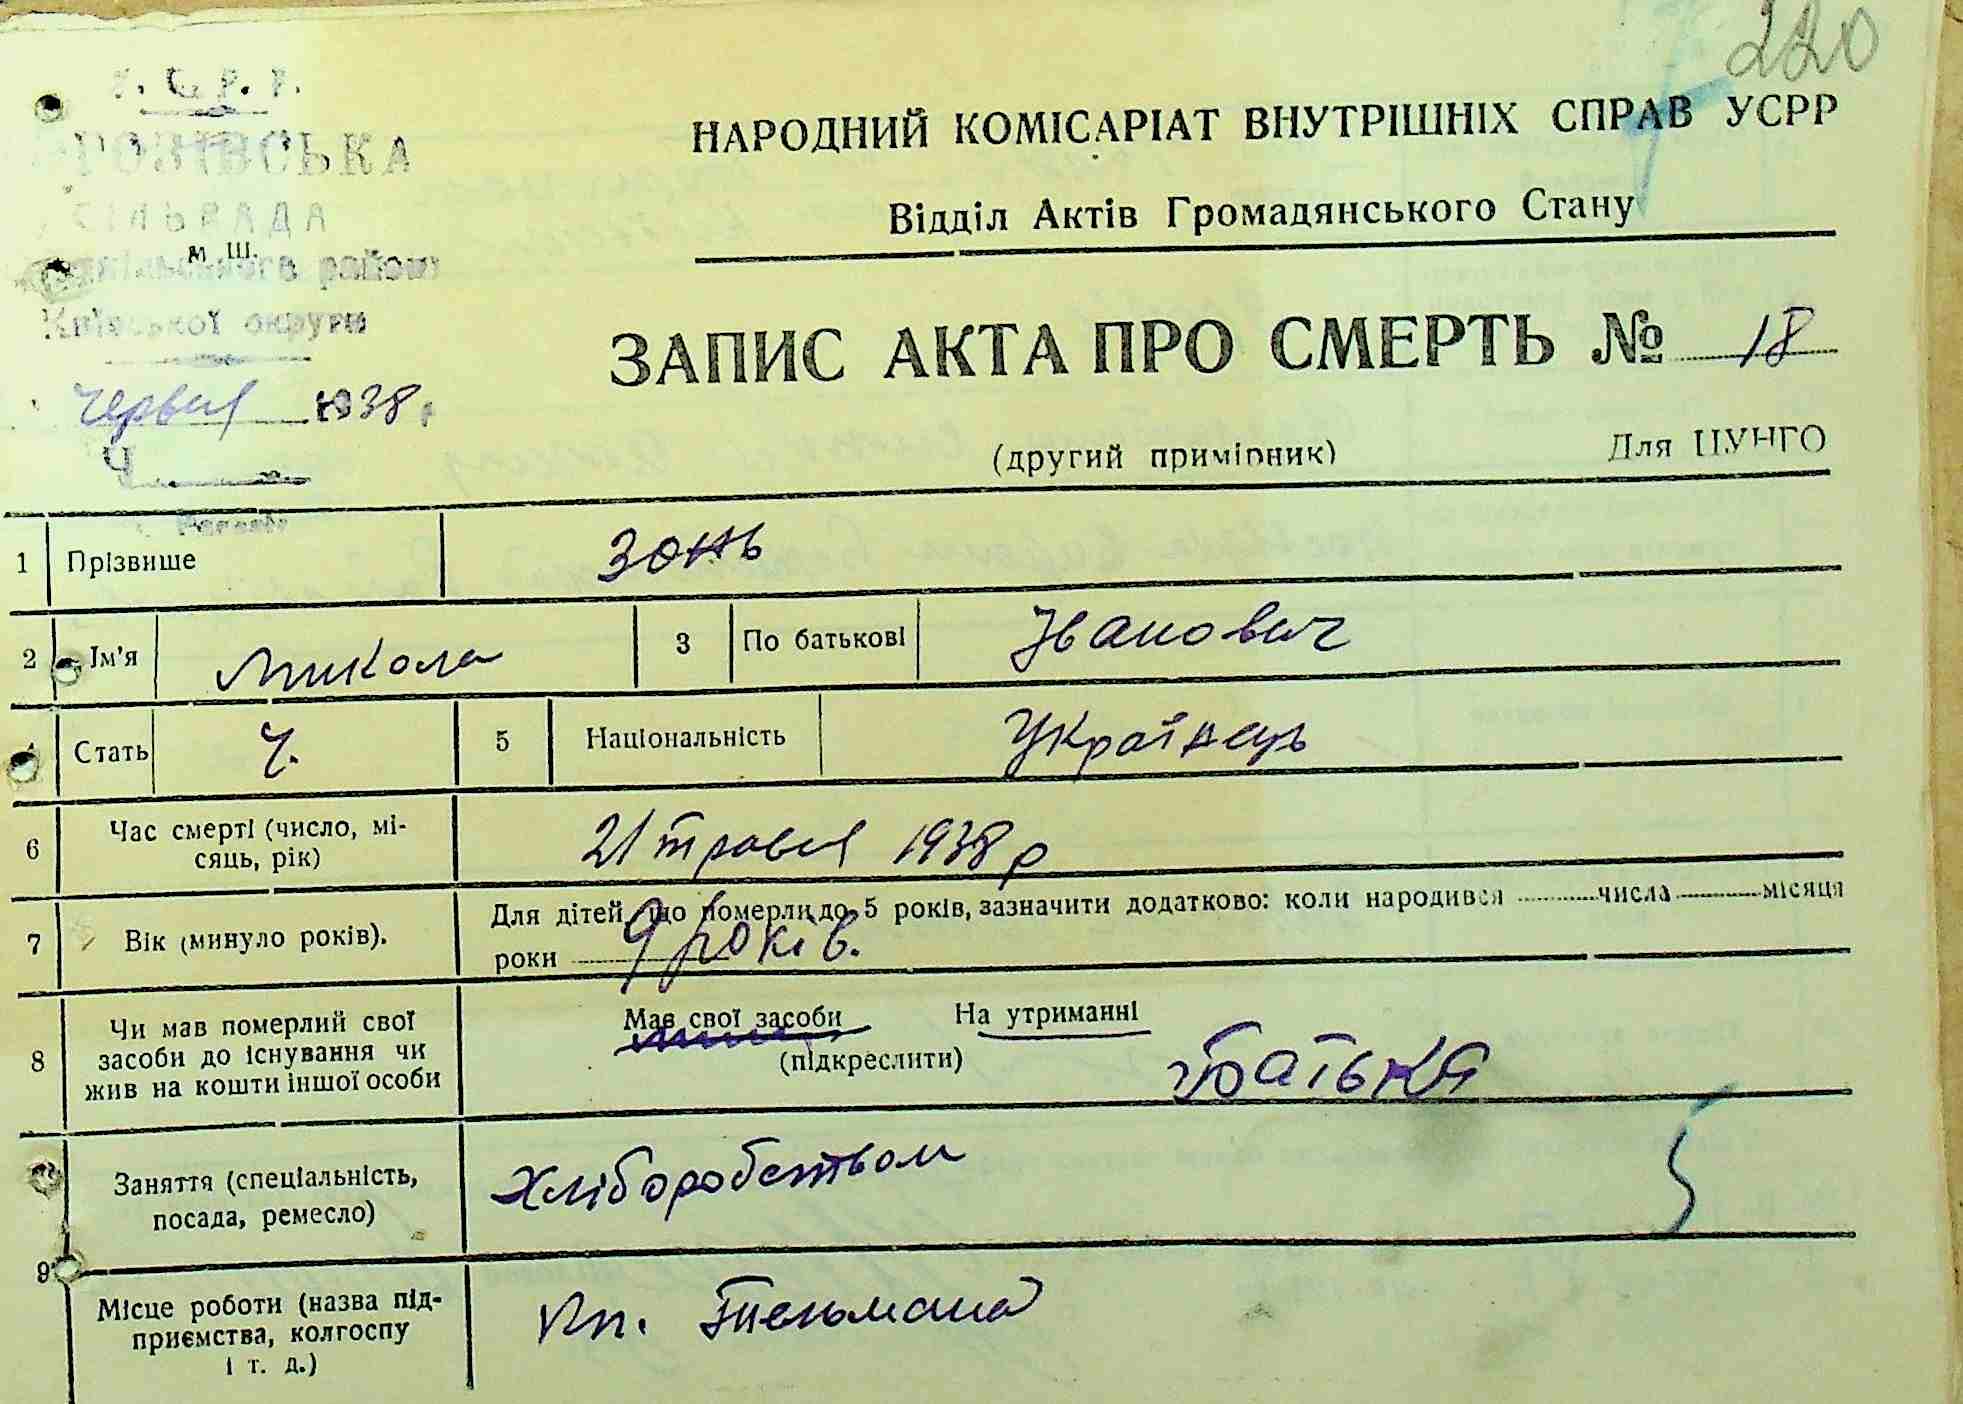 220
У. С. Р. Р.
РОЗІВСЬКА
СІЛЬРАДА
м Ш.
району
Київської округи
червня 1938 р
Ч
НАРОДНИЙ КОМІСАРІАТ ВНУТРІШНІХ СПРАВ УСРР
Відділ Актів Громадянського Стану
ЗАПИС АКТА ПРО СМЕРТЬ № 18
(другий примірник) Для ЦУНГО
1 Прізвище Зонь
2 Ім'я Микола 3 По батькові Іванович
4 Стать Ч. 5 Національність Українець
6 Час смерті (число, мі-
сяць, рік) 21 травня 1938 р
7 Вік (минуло років). Для дітей, що померли до 5 років, зазначити додатково: коли народився числа місяця
роки 9 років.
8 Чи мав померлий свої
засоби до існування чи
жив на кошти іншої особи
Має свої засоби На утриманні
(підкреслити) батька
9 Заняття (спеціальність,
посада, ремесло) Хліборобством
5
Місце роботи (назва під-
приємства, колгоспу
і т. д.) Тельмана